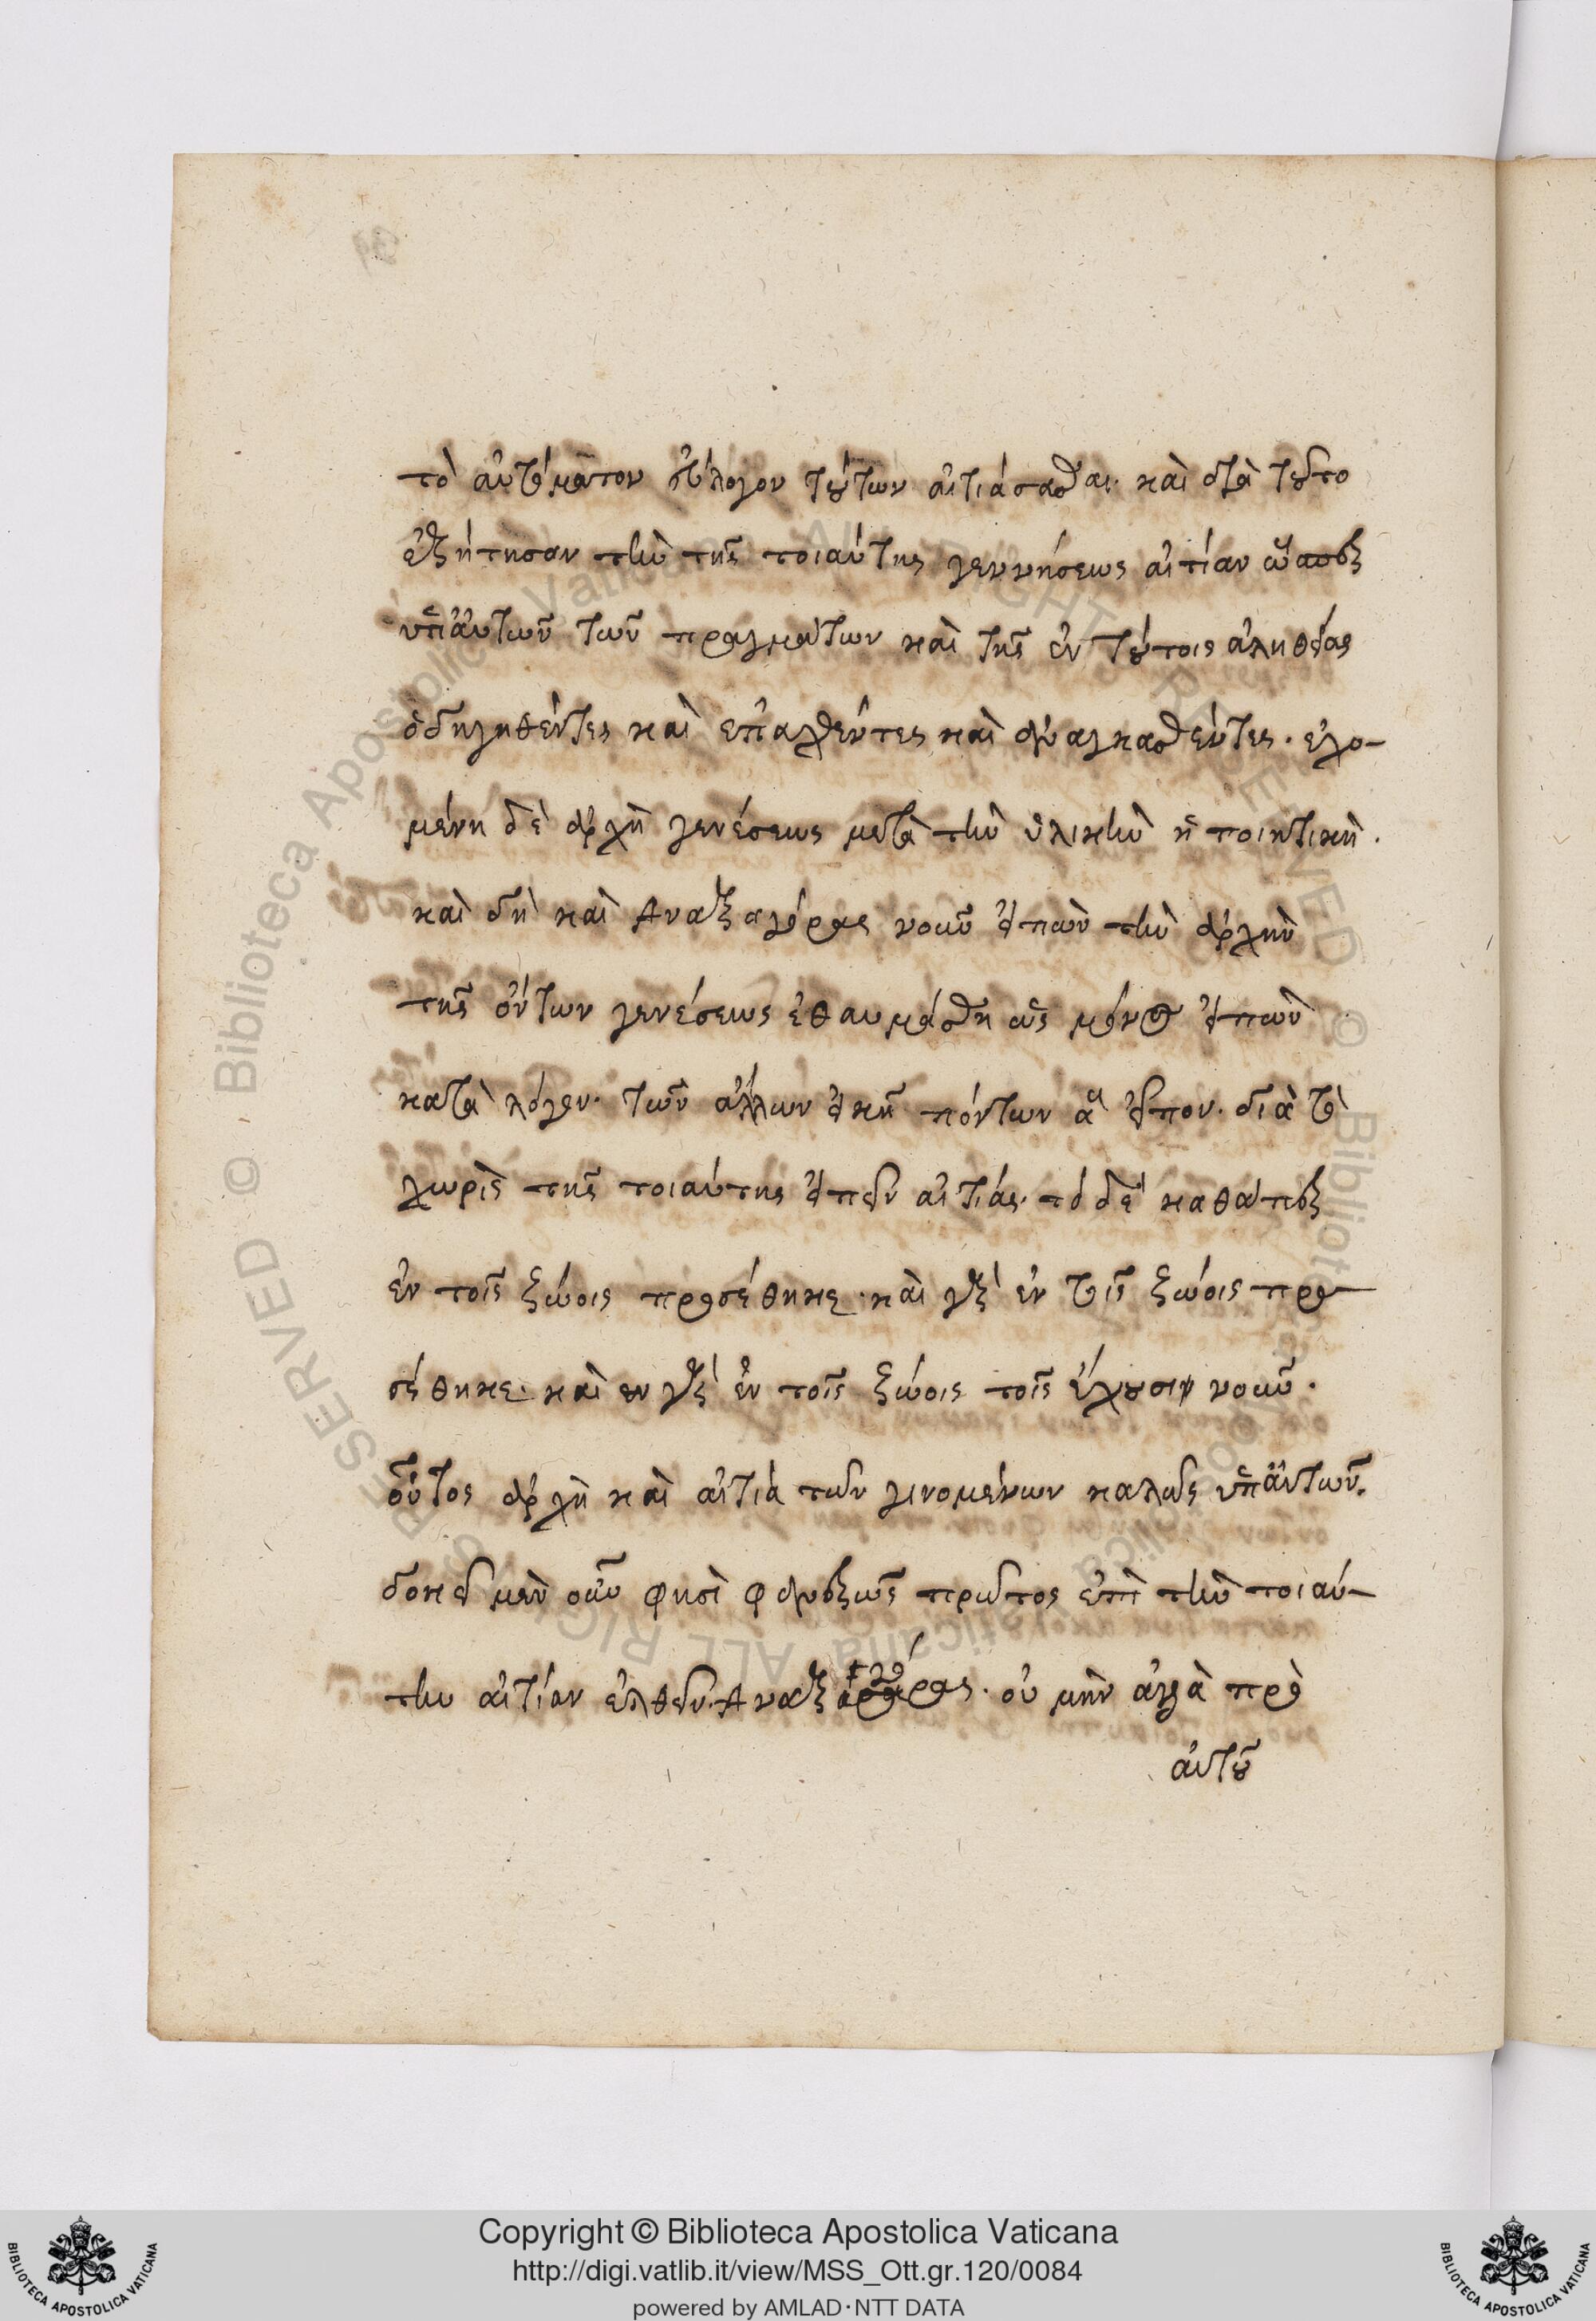 τὸ αὐτόματον εὔλογον τούτων αἰτιάσασθαι. καὶ διὰ τοῦτο
ἐζήτησαν τὴν τῆς τοιαύτης γεννήσεως αἰτίαν ὥσπερ
ὑπ' αὐτῶν τῶν πραγμάτων καὶ τῆς ἐν τούτοις ἀληθείας
ὁδηγηθέντες καὶ ἐπαχθέντες καὶ ἀναγκασθέντες. ἐχο-
μένη δὲ ἀρχὴ γενέσεως μετὰ τὴν ὑλικὴν ἡ ποιητικὴ.
καὶ δὴ καὶ Αναξαγόρας νοῦν εἰπὼν τὴν ἀρχὴν
τῆς ὄντων γενέσεως ἐθαυμάσθη ὡς μόνος εἰπὼν
κατὰ λόγον. τῶν ἄλλων εἰκῆ πόντων ἃ εἶπον. διὰ τὸ
χωρὶς τῆς τοιαύτης εἰπεῖν αἰτίας. τὸ δὲ καθάπερ
ἐν τοῖς ζώοις προσέθηκε. καὶ γὰρ ἐν τοῖς ζώοις προ-
σέθηκε. καὶ γὰρ ἐν τοῖς ζώοις τοῖς ἔχουσιν νοῦν.
οὗτος ἀρχὴ καὶ αἰτία τῶν γινομένων καλῶς ὑπ' αὐτῶν.
δοκεῖ μὲν οὖν φησὶ φανερῶς πρῶτος ἐπὶ τὴν τοιαύ-
την αἰτίαν ἐλθεῖν. Αναξαγόρας. οὐ μὴν ἀλλὰ πρὸ
αὐτοῦ
Copyright © Biblioteca Apostolica Vaticana
http://digi.vatlib.it/view/MSS_Ott.gr.120/0084
powered by AMLAD·NTT DATA